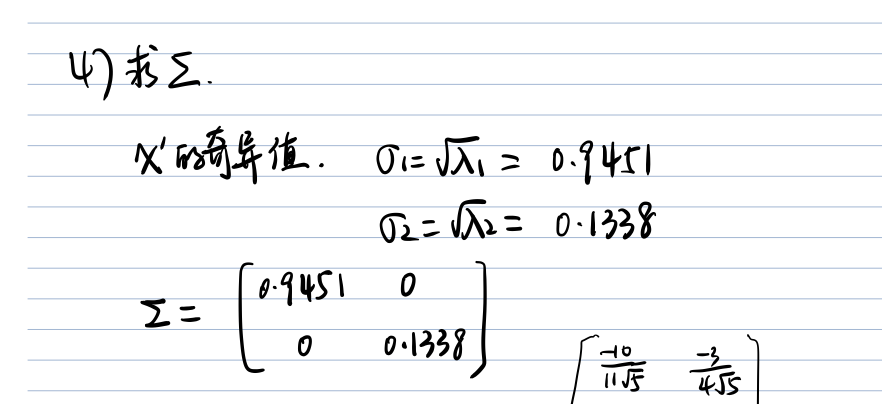 4) 求Σ.
X'的奇异值. σ1=√λ1 = 0.9451
σ2=√λ2= 0.1338
Σ= [0.9451 0
0 0.1338]
-10/11√5 -3/4√5